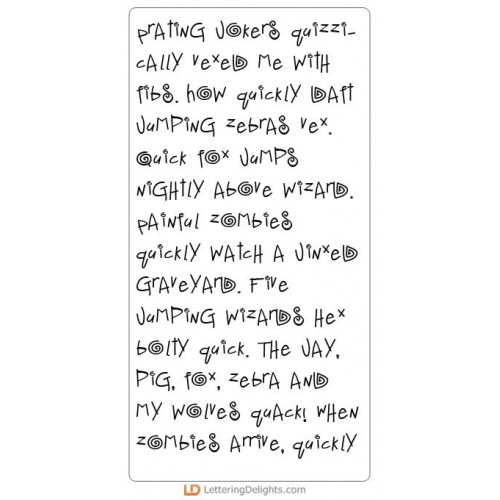 Prating jokers quizzi-
cally vexed me with
fibs. How quickly daft
jumping zebras vex.
Quick fox jumps
nightly above wizard.
Painful zombies
quickly watch a jinxed
graveyard. Five
jumping wizards hex
bolty quick. The jay,
pig, fox, zebra and
my wolves quack! When
zombies arrive, quickly
LD LetteringDelights.com